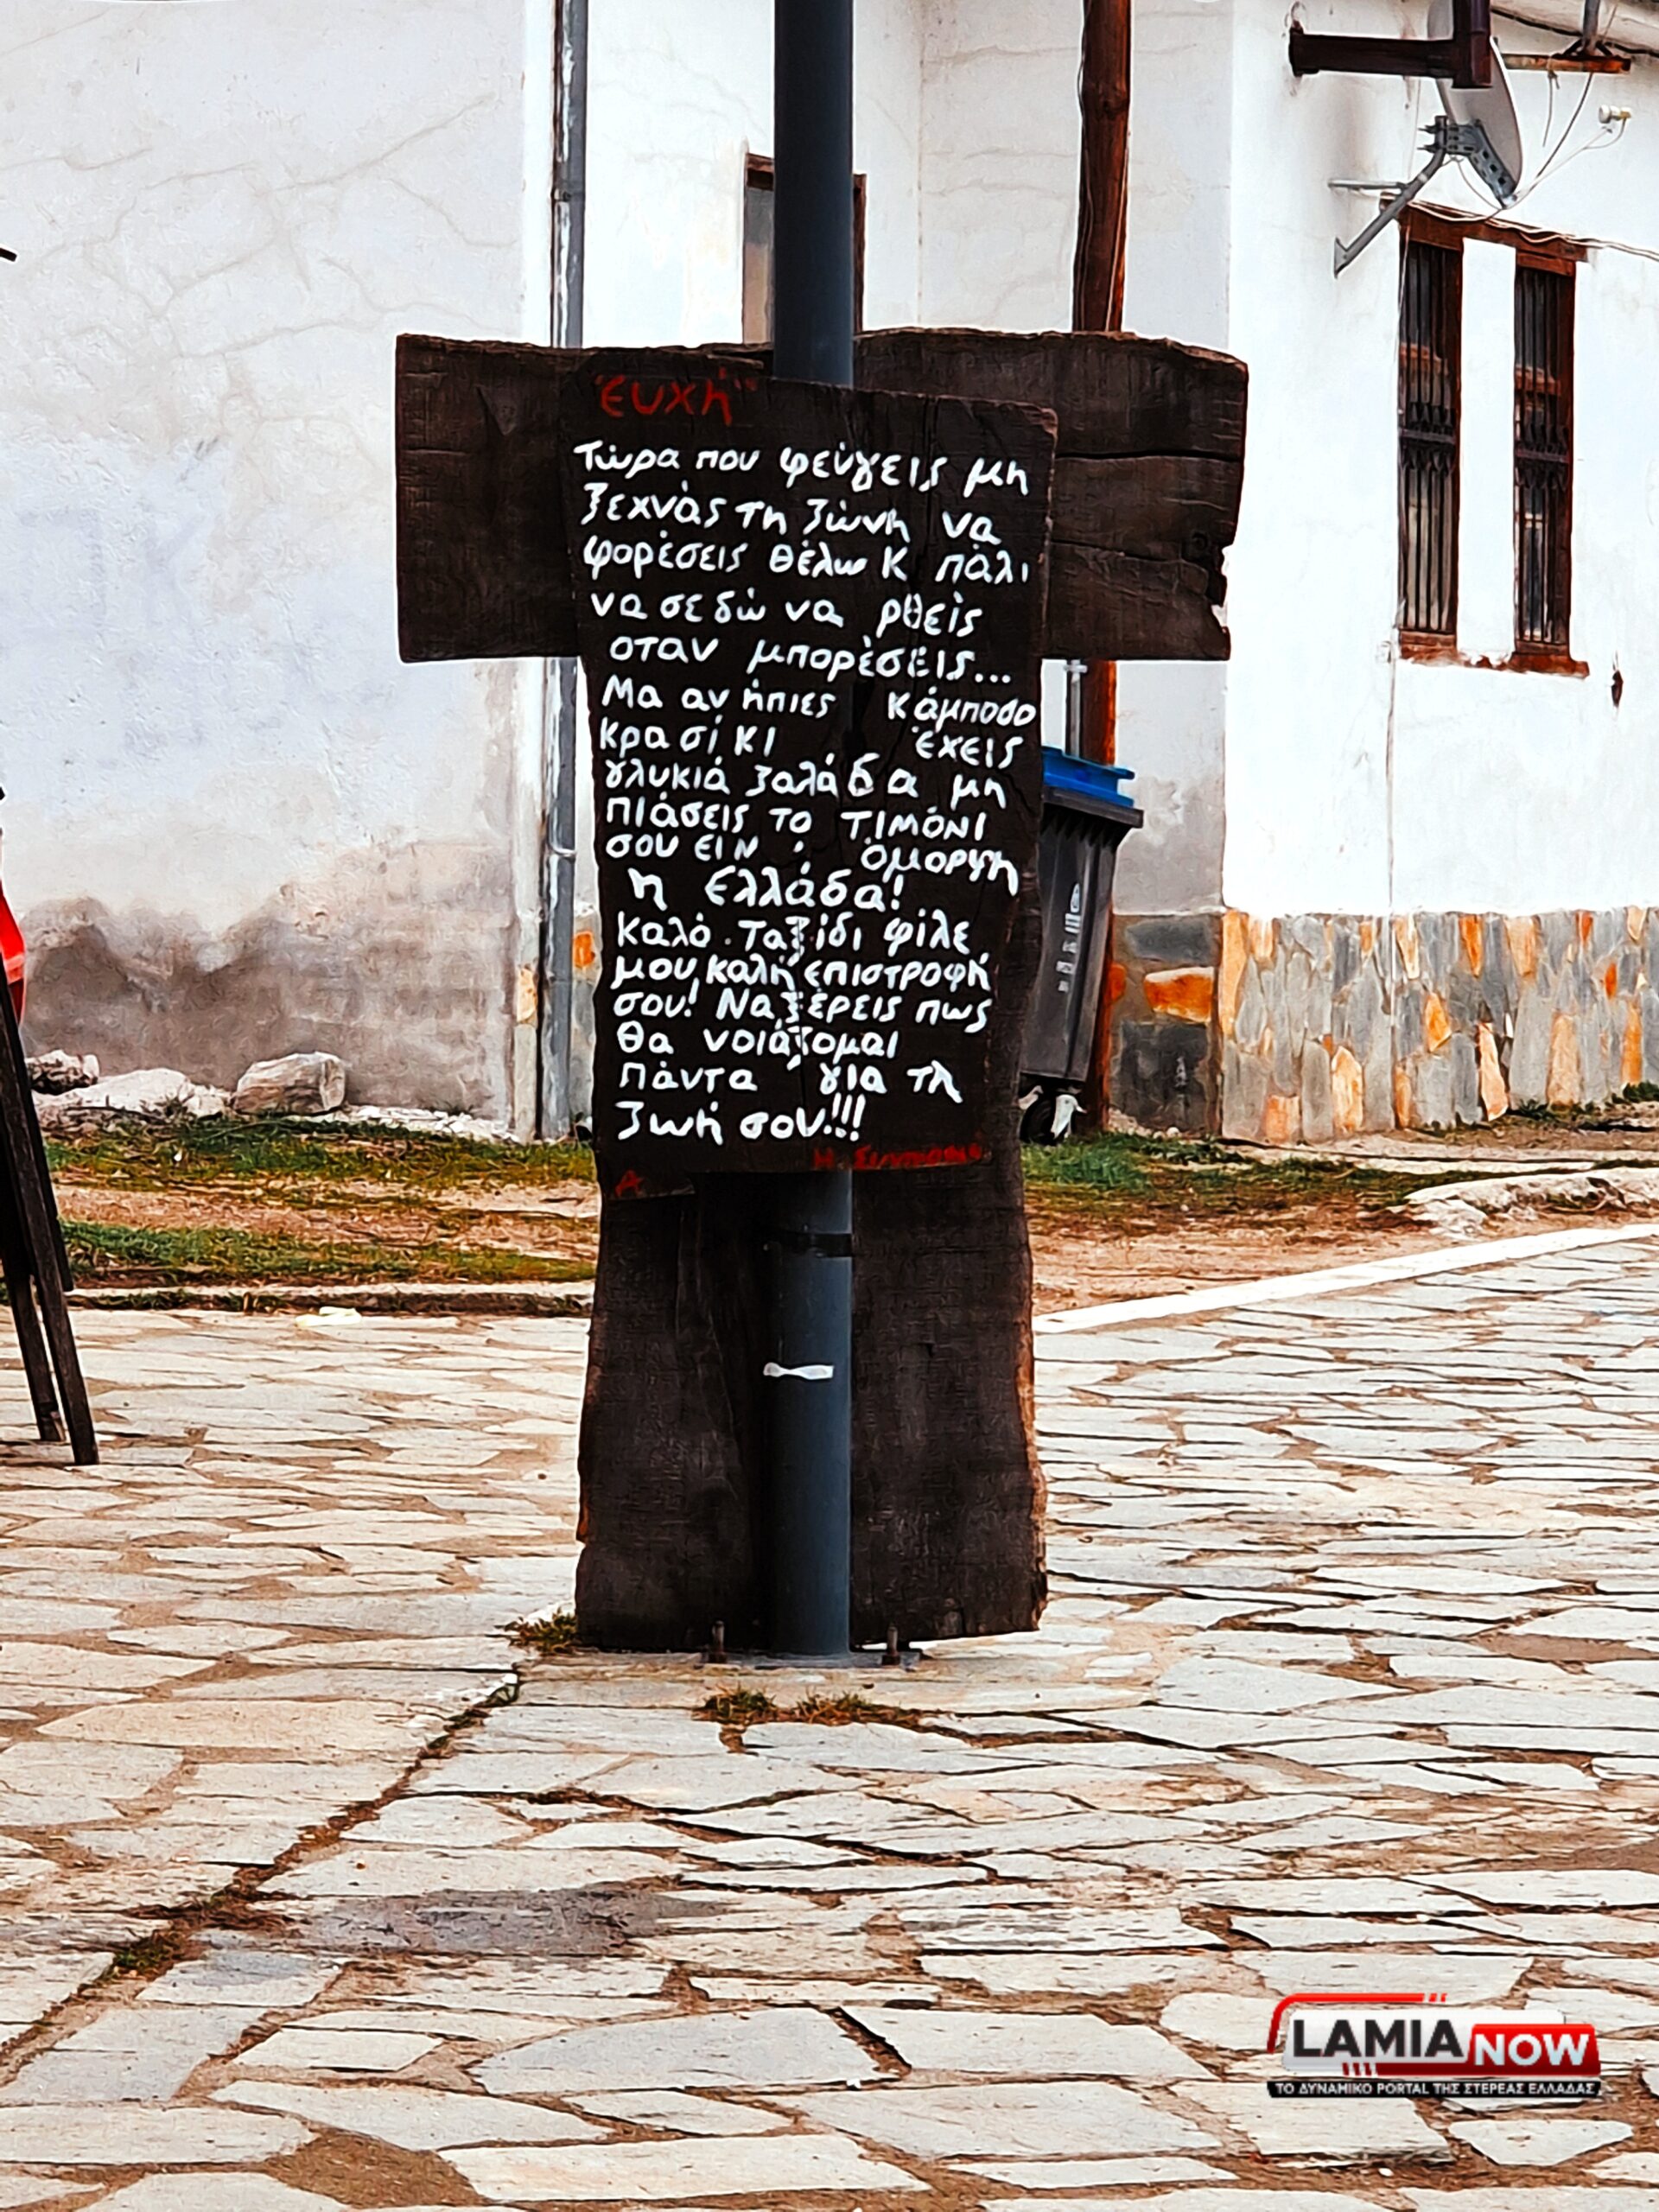 "Ευχή"
Τώρα που φεύγεις μη
ξεχνάς τη ζώνη να
φορέσεις θέλω Κ πάλι
να σε δώ να ρθείς
οταν μπορέσεις...
Μα αν ήπιες κάμποσο
κρασί κι έχεις
γλυκιά ζαλάδα μη
πιάσεις το τιμόνι
σου ειν' όμορφη
η Ελλάδα!
Καλό ταξίδι φίλε
μου καλή επιστροφή
σου! Να ξέρεις πως
θα νοιάζομαι
πάντα για τη
ζωή σου!!!
Α
LAMIA NOW
ΤΟ ΔΥΝΑΜΙΚΟ PORTAL ΤΗΣ ΣΤΕΡΕΑΣ ΕΛΛΑΔΑΣ